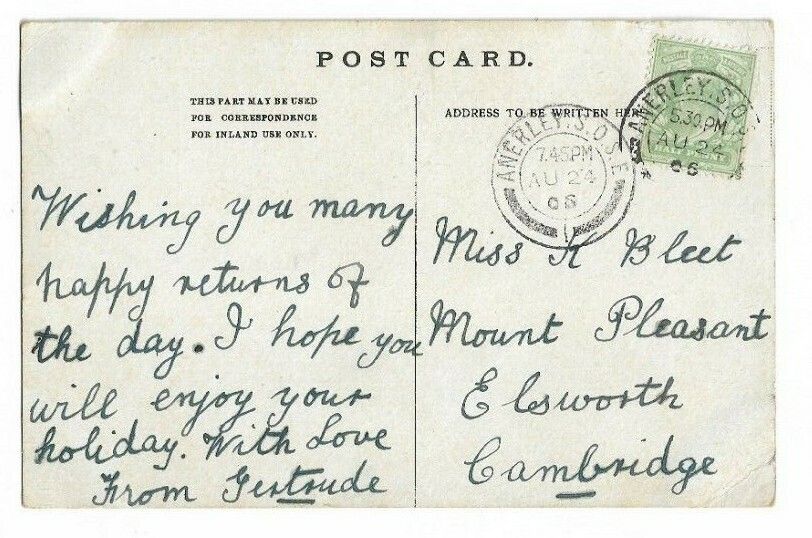 POST CARD.
THIS PART MAY BE USED
FOR CORRESPONDENCE
FOR INLAND USE ONLY.
ADDRESS TO BE WRITTEN HERE
ANERLEY.S.O.S.E
7.45PM
AU 24
06
ANERLEY.S.O.S
5.30PM
AU 24
06
Wishing you many
happy returns of
the day. I hope you
will enjoy your
holiday. With Love
From Gertrude
Miss K Bleet
Mount Pleasant
Elsworth
Cambridge